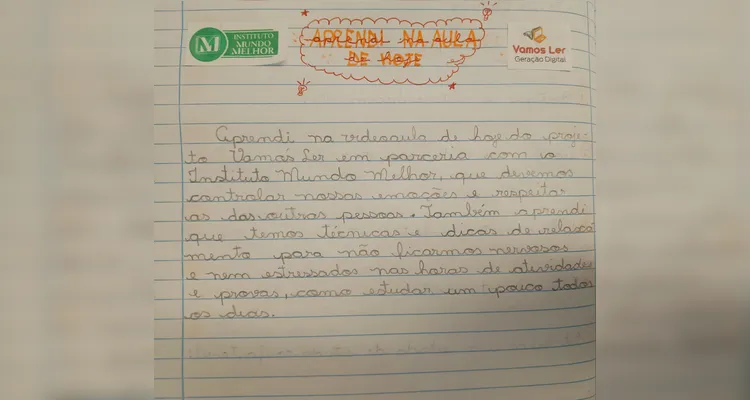 INSTITUTO
MUNDO
MELHOR
APRENDI NA AULA
DE HOJE
Vamos Ler
Geração Digital
Aprendi na videoaula de hoje do proje-
to Vamos Ler em parceria com o
Instituto Mundo Melhor, que devemos
controlar nossas emoções e respeitar
as das outras pessoas. Também aprendi
que temos técnicas e dicas de relaxa
mento para não ficarmos nervosos
e nem estressados nas horas de atividades
e provas, como estudar um pouco todos
os dias.